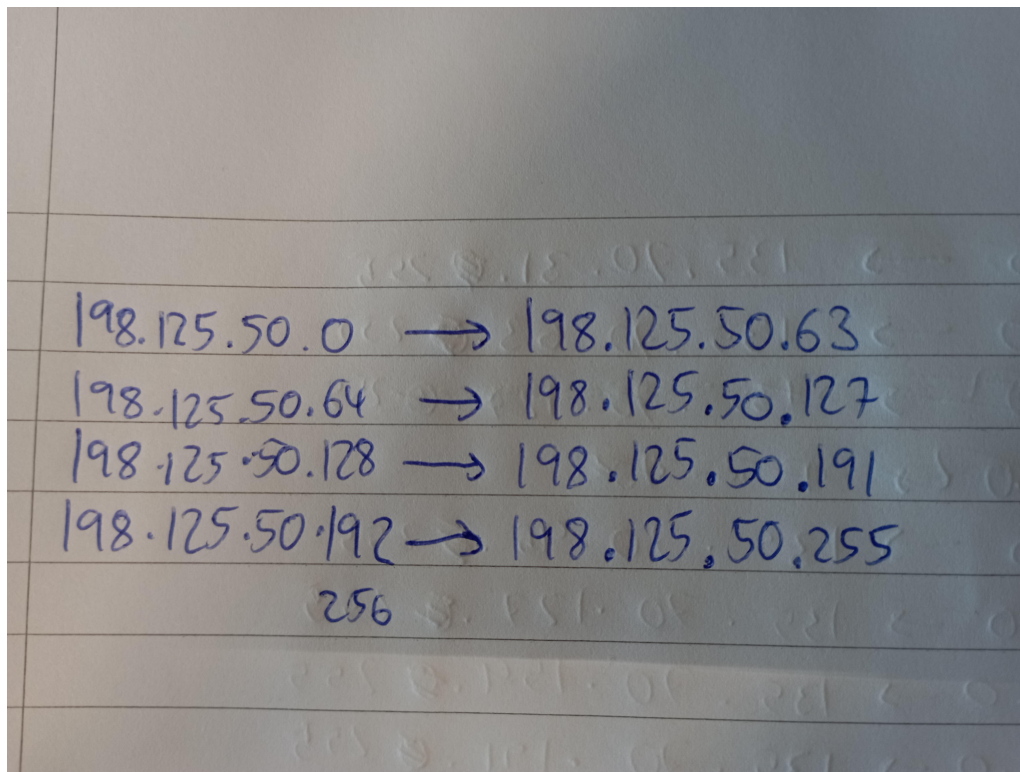 198.125.50.0 → 198.125.50.63
198.125.50.64 → 198.125.50.127
198.125.50.128 → 198.125.50.191
198.125.50.192 → 198.125.50.255
256